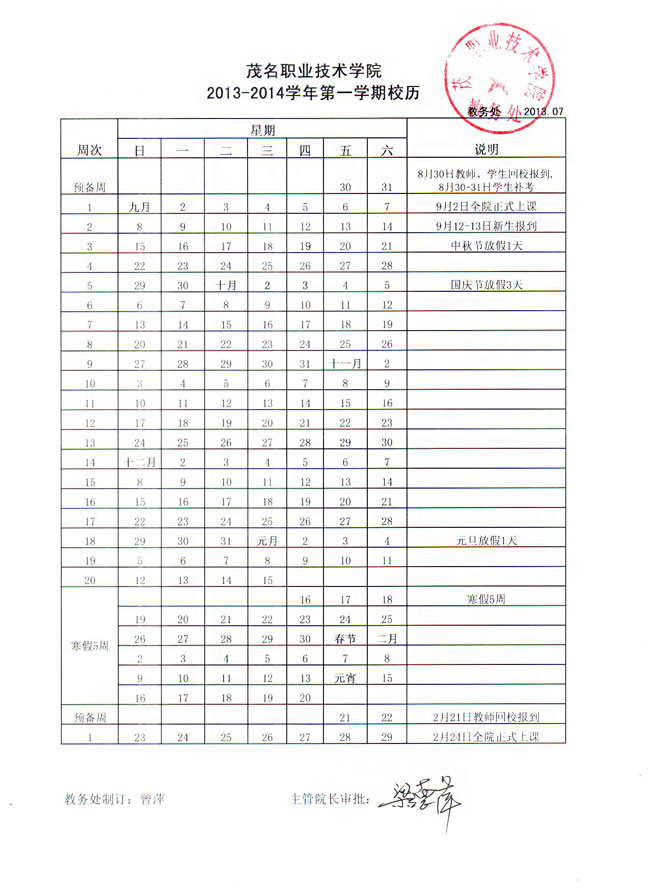 茂名职业技术学院
2013-2014学年第一学期校历
茂 职业技术学院
教务处
教务处 2013.07
星期
周次 日 一 二 三 四 五 六 说明
预备周 30 31 8月30日教师、学生回校报到,
8月30-31日学生补考
1 九月 2 3 4 5 6 7 9月2日全院正式上课
2 8 9 10 11 12 13 14 9月12-13日新生报到
3 15 16 17 18 19 20 21 中秋节放假1天
4 22 23 24 25 26 27 28
5 29 30 十月 2 3 4 5 国庆节放假3天
6 6 7 8 9 10 11 12
7 13 14 15 16 17 18 19
8 20 21 22 23 24 25 26
9 27 28 29 30 31 十一月 2
10 3 4 5 6 7 8 9
11 10 11 12 13 14 15 16
12 17 18 19 20 21 22 23
13 24 25 26 27 28 29 30
14 十二月 2 3 4 5 6 7
15 8 9 10 11 12 13 14
16 15 16 17 18 19 20 21
17 22 23 24 25 26 27 28
18 29 30 31 元月 2 3 4 元旦放假1天
19 5 6 7 8 9 10 11
20 12 13 14 15
16 17 18 寒假5周
19 20 21 22 23 24 25
26 27 28 29 30 春节 二月
寒假5周
2 3 4 5 6 7 8
9 10 11 12 13 元宵 15
16 17 18 19 20
预备周 21 22 2月21日教师回校报到
1 23 24 25 26 27 28 29 2月24日全院正式上课
教务处制订：曾萍 主管院长审批：